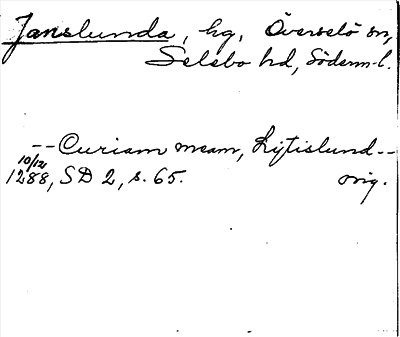 Janslunda, hg, Överselö sn,
Selebo hd, Söderm.l.
-- Curiam meam, Lytislund --
10/12
1288, SD 2, s. 65. orig.